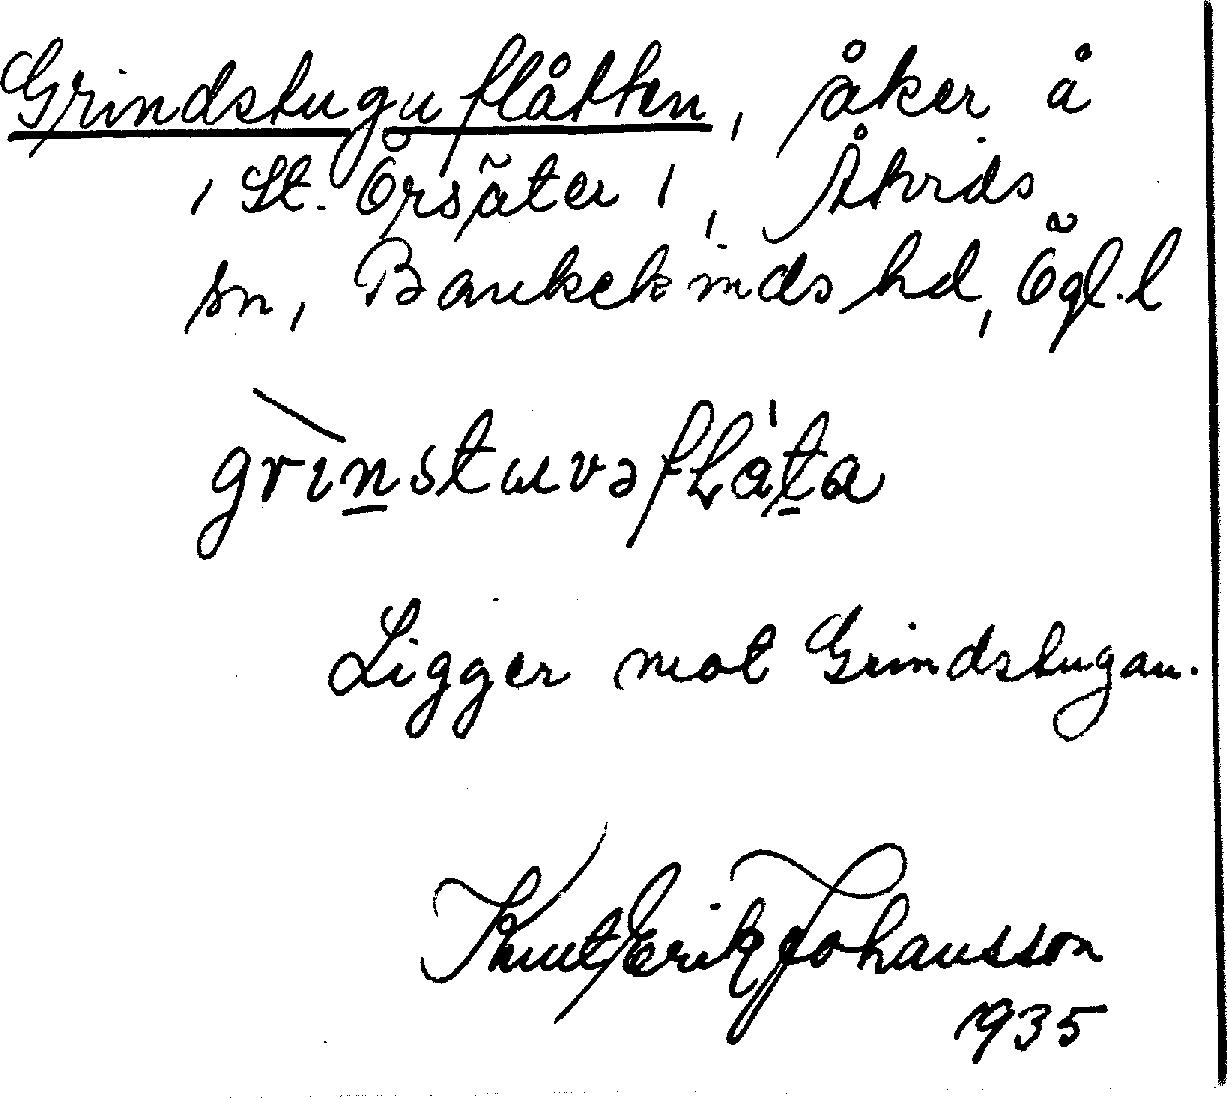 Grindstuguflåtten, åker å
St. Örsäter 1, Åtvids
sn, Bankekinds hd, Ögl. l
grinstuvəflåta
Ligger mot Grindstugan.
Knut Erik Johansson
1935